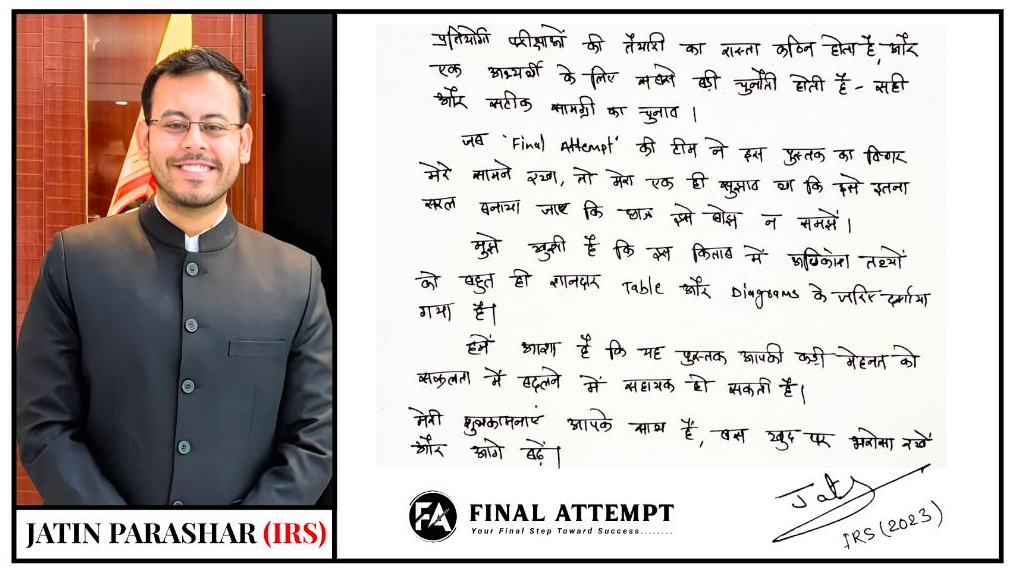 प्रतियोगी परीक्षाओं की तैयारी का रास्ता कठिन होता है, और
एक अभ्यर्थी के लिए सबसे बड़ी चुनौती होती है - सही
और सटीक सामग्री का चुनाव ।
जब 'Final Attempt' की टीम ने इस पुस्तक का विचार
मेरे सामने रखा, तो मेरा एक ही सुझाव था कि इसे इतना
सरल बनाया जाए कि छात्र इसे बोझ न समझें ।
मुझे खुशी है कि इस किताब में अधिकांश तथ्यों
को बहुत ही शानदार Table और Diagrams के जरिए दर्शाया
गया है ।
हमें आशा है कि यह पुस्तक आपकी कड़ी मेहनत को
सफलता में बदलने में सहायक हो सकती है ।
मेरी शुभकामनाएं आपके साथ हैं, बस खुद पर भरोसा रखें
और आगे बढ़ें ।
JATIN PARASHAR (IRS)
FA
FINAL ATTEMPT
Your Final Step Toward Success........
IRS (2023)